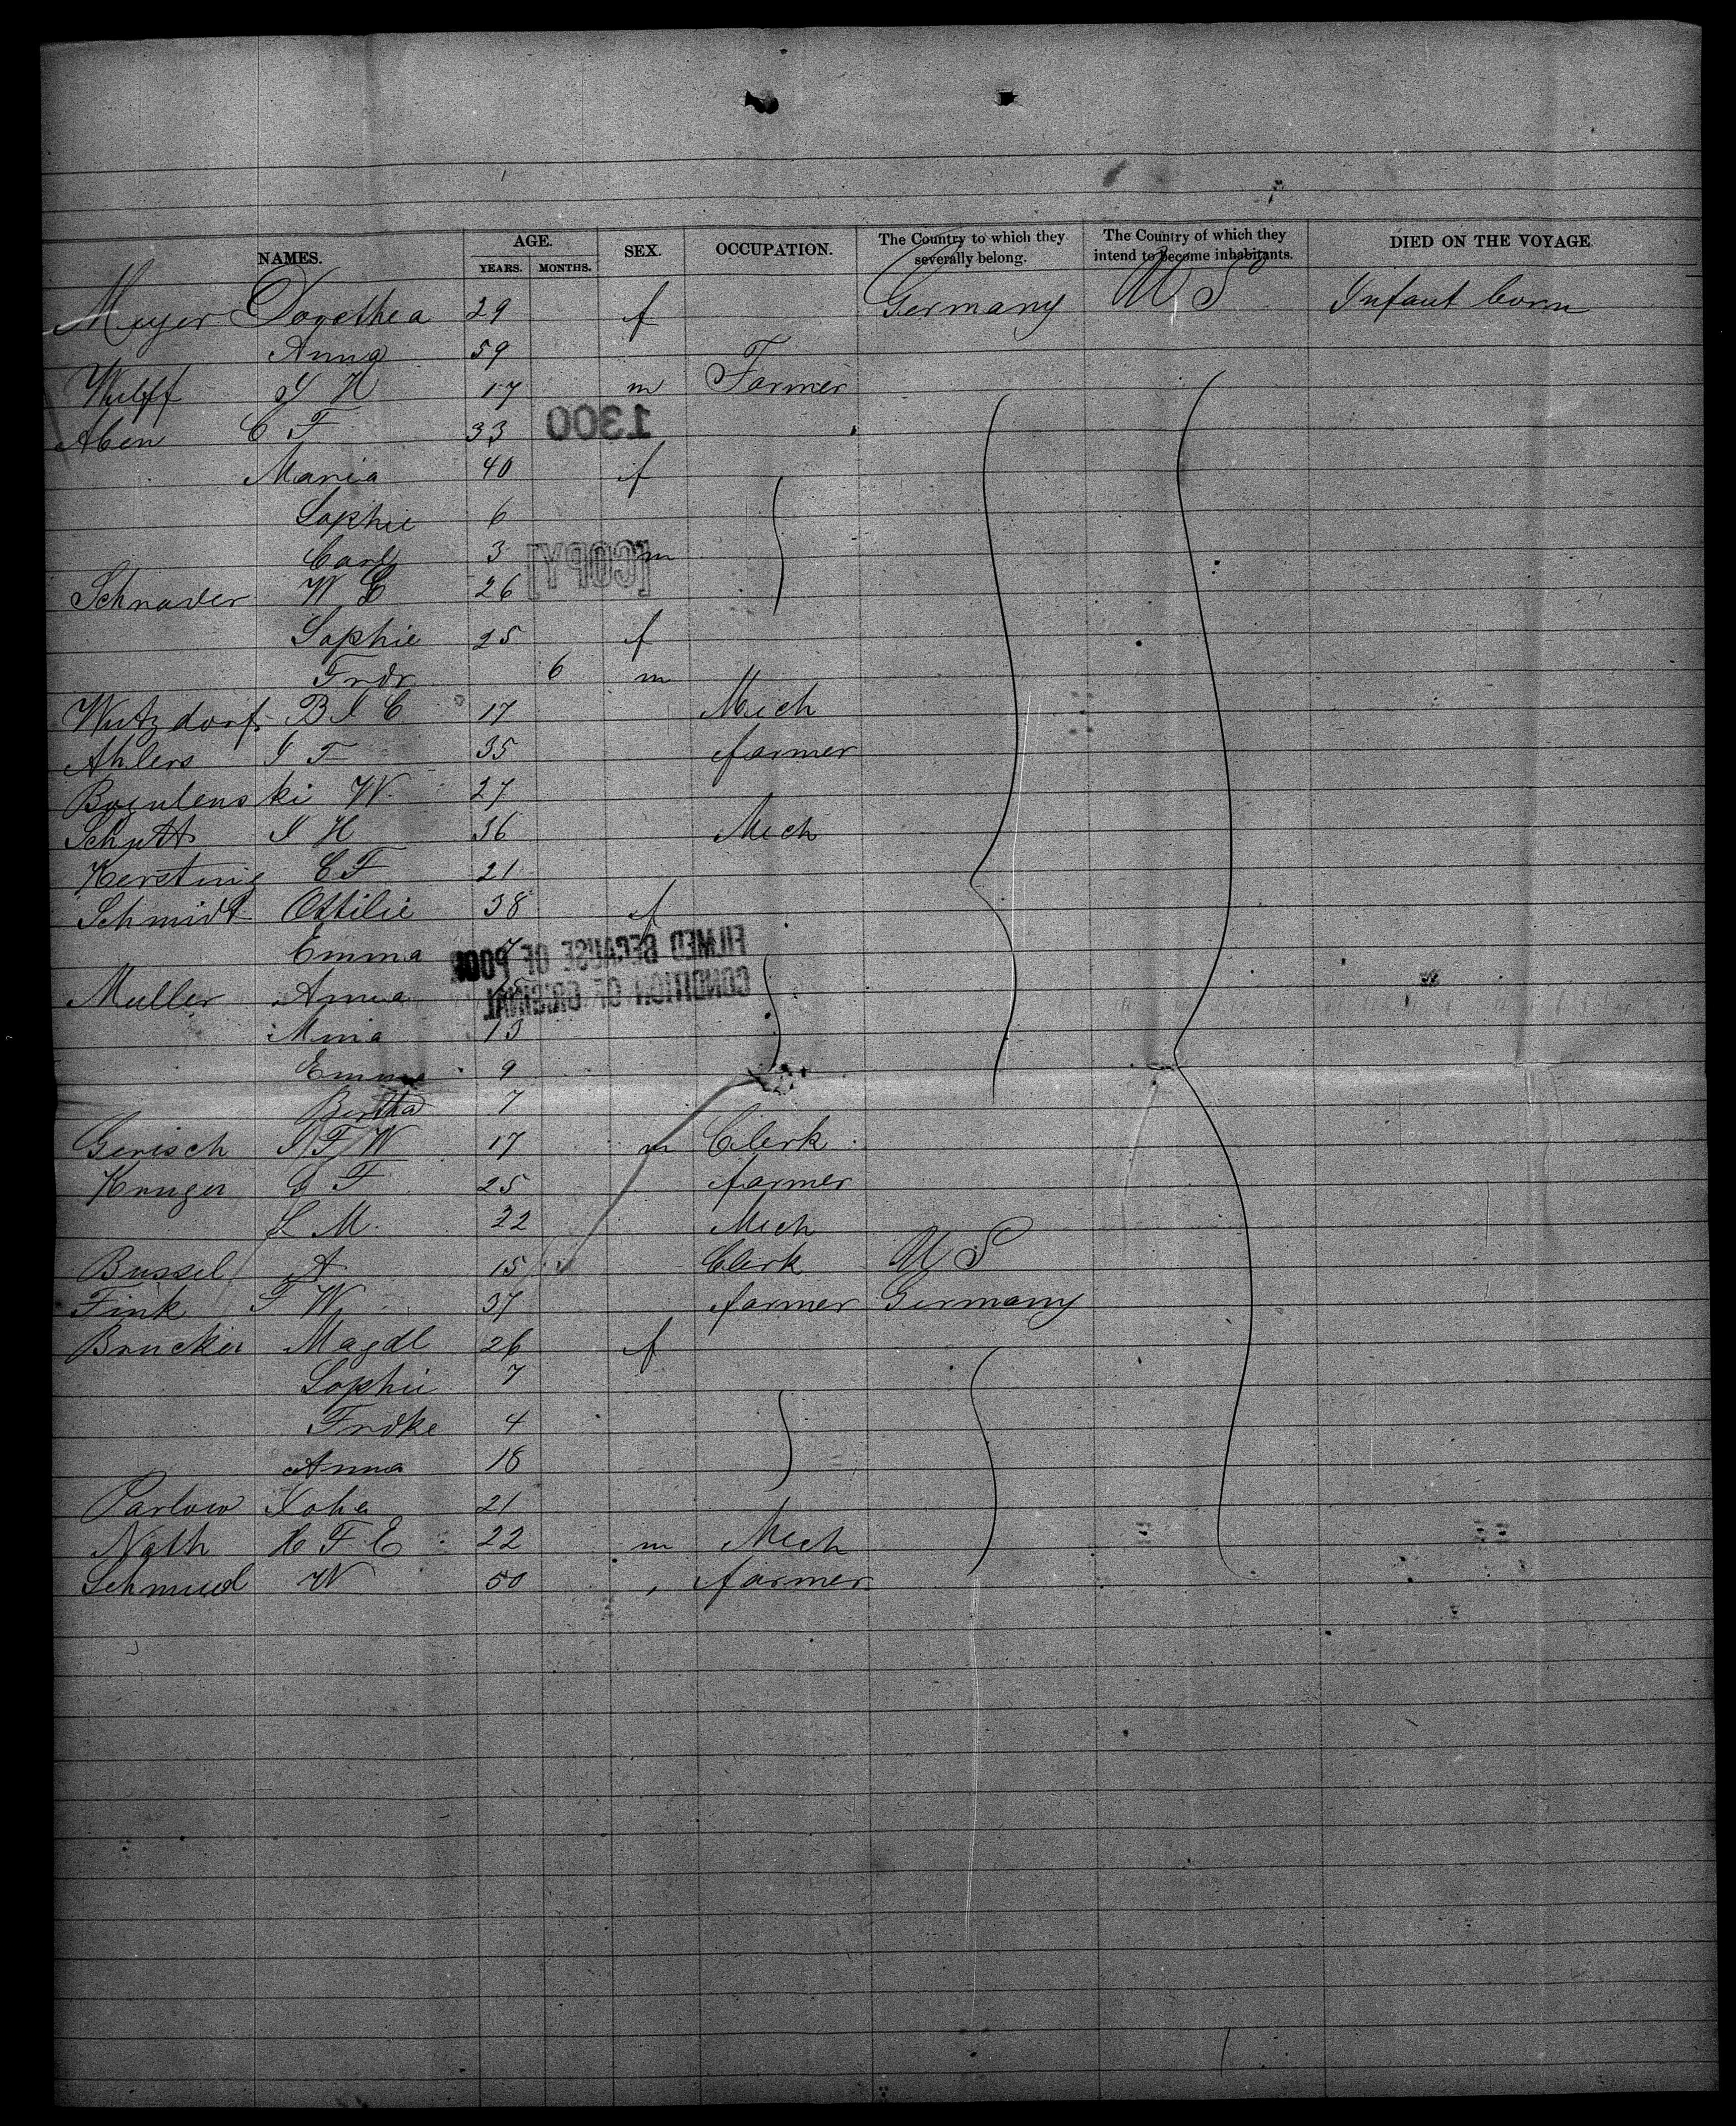 NAMES. AGE. YEARS. MONTHS. SEX. OCCUPATION. The Country to which they severally belong. The Country of which they intend to become inhabitants. DIED ON THE VOYAGE.
Meyer Dorethea 29 f Germany U S Infant born
Anna 59
Wulff J H 17 m Farmer
1300
Aben C F 33
Maria 40 f
Sophie 6
Carl 3 m
[COPY]
Schnader W 26
Sophie 25 f
Frdr 6 m
Wutzdorf B I C 17 Mich
Ahlers I F 35 farmer
ki W. 27
Schutt I H 36 Mech
Kersting C F 21
Schmidt Ottilie 38 f
Emma 7
FILMED BECAUSE OF POOR
CONDITION OF ORIGINAL
Muller Anna
Mina 13
Emma 9
Bertha 7
Gerisch I F W 17 m Clerk
Kruger F 25 farmer
L M. 22 Mech
Bussel A 15 Clerk U S
Fink F W 37 farmer Germany
Brucker Magdl 26 f
Sophie 7
Frdke 4
Anna 18
Parlow Joha 21
Nath H F E 22 m Mech
W 50 farmer